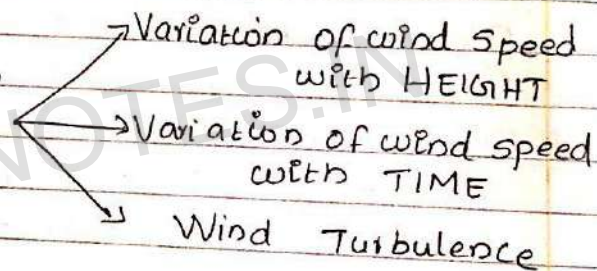 Variation of wind speed
with HEIGHT
Variation of wind speed
with TIME
Wind Turbulence
NOTES.IN